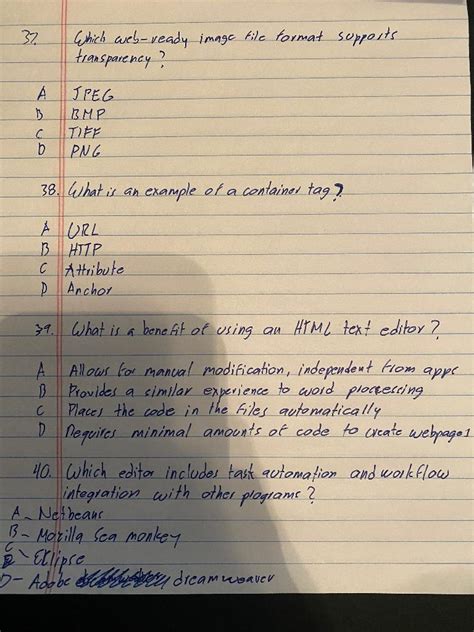 37. Which web-ready image file format supports
transparency?
A JPEG
B BMP
C TIFF
D PNG
38. What is an example of a container tag?
A URL
B HTTP
C Attribute
D Anchor
39. What is a benefit of using an HTML text editor?
A Allows for manual modification, independent from apps
B Provides a similar experience to word processing
C Places the code in the files automatically
D Requires minimal amounts of code to create webpages
40. Which editor includes task automation and workflow
integration with other programs?
A- Netbeans
B- Mozilla Sea monkey
C- Eclipse
D- Adobe dreamweaver